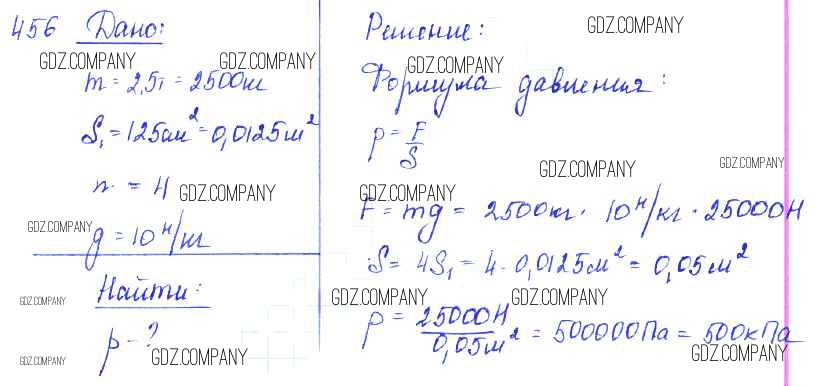 456 Дано:
GDZ.COMPANY GDZ.COMPANY
m = 2,5т = 2500кг
S₁ = 125см² = 0,0125м²
n = 4 GDZ.COMPANY
GDZ.COMPANY
g = 10 Н/кг
Найти:
GDZ.COMPANY
p - ?
GDZ.COMPANY GDZ.COMPANY
Решение: GDZ.COMPANY
GDZ.COMPANY
Формула давления:
p = F/S
GDZ.COMPANY GDZ.COMPANY
GDZ.COMPANY
F = mg = 2500кг · 10 Н/кг · 25000Н
S = 4S₁ = 4 · 0,0125м² = 0,05м²
GDZ.COMPANY GDZ.COMPANY
p = 25000Н/0,05м² = 500000Па = 500кПа
GDZ.COMPANY